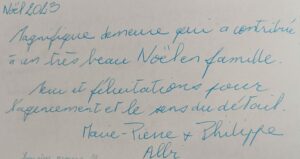 Noël 2023
Magnifique demeure qui a contribué
à un très beau Noël en famille.
Merci et félicitations pour
l'agencement et le sens du détail.
Marie-Pierre & Philippe